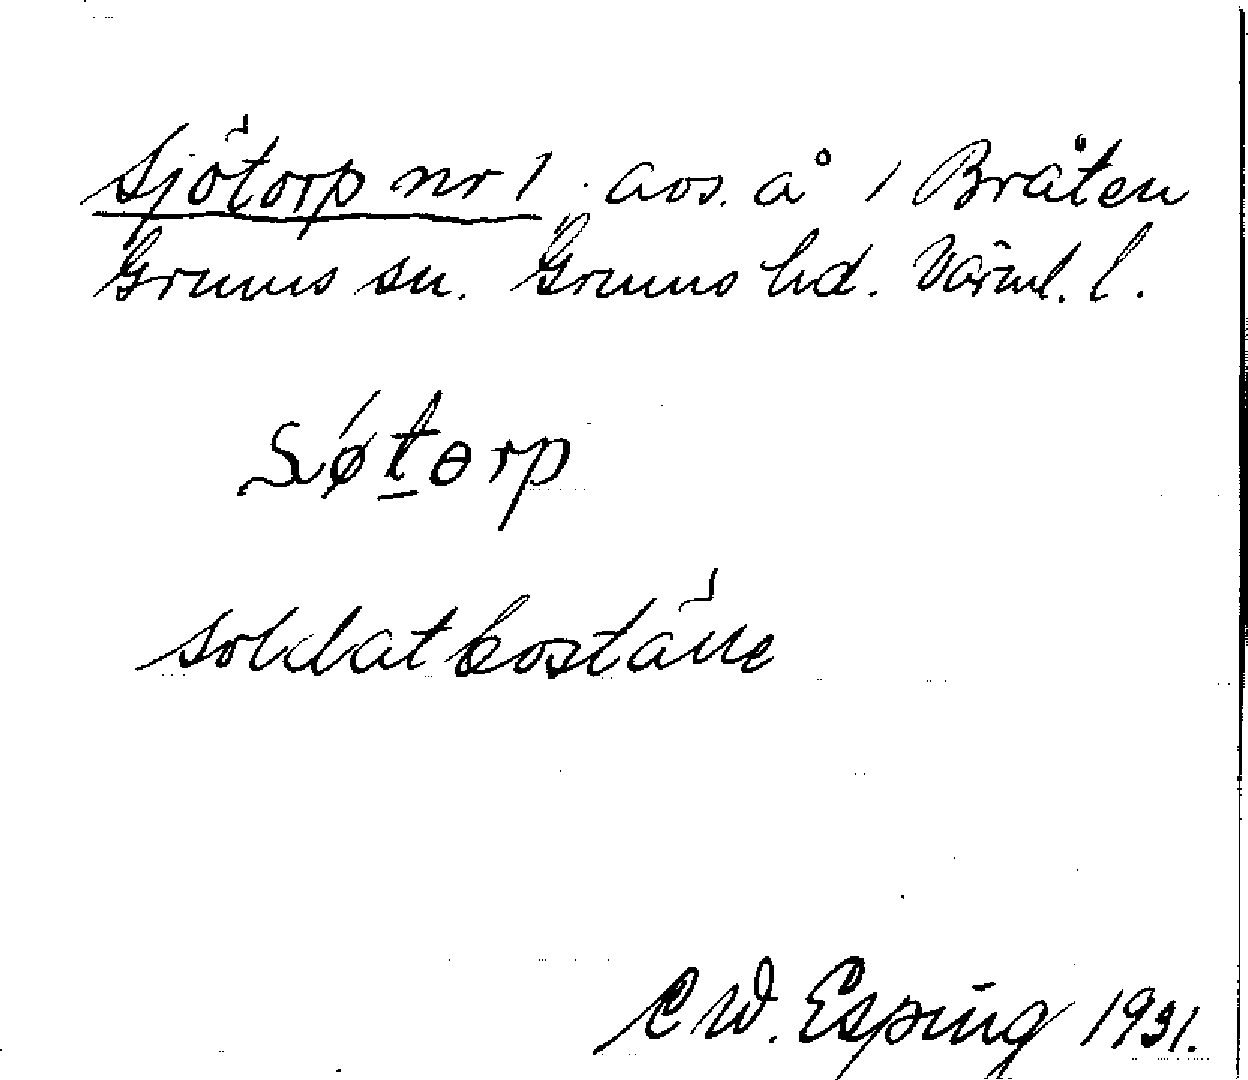 Sjötorp nr 1. avs. å 1 Bråten
Grums sn. Grums hd. Värml. l.
Søtorp
soldatboställe
C W. Esping 1931.